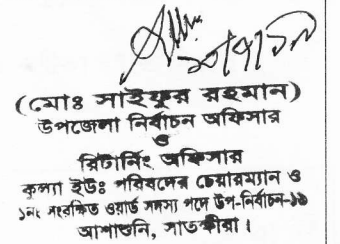 (মোঃ সাইফুর রহমান)
উপজেলা নির্বাচন অফিসার
ও
রিটার্নিং অফিসার
কুল্যা ইউঃ পরিষদের চেয়ারম্যান ও
১নং সংরক্ষিত ওয়ার্ড সদস্য পদে উপ-নির্বাচন-১৯
আশাশুনি, সাতক্ষীরা।